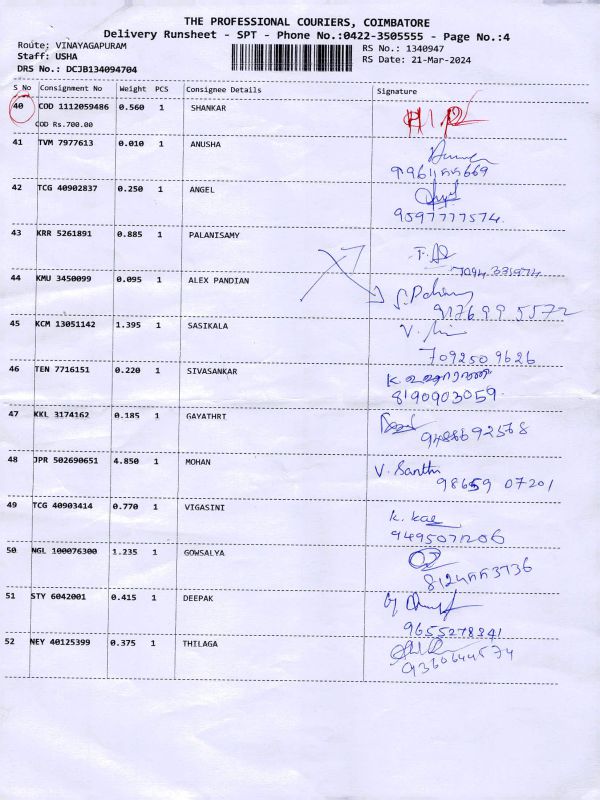 THE PROFESSIONAL COURIERS, COIMBATORE
Delivery Runsheet - SPT - Phone No.:0422-3505555 - Page No.:4
Route: VINAYAGAPURAM
Staff: USHA
DRS No.: DCJB134094704
RS No.: 1340947
RS Date: 21-Mar-2024
S No Consignment No Weight PCS Consignee Details Signature
40 COD 1112059486 0.560 1 SHANKAR
COD Rs.700.00
41 TVM 7977613 0.010 1 ANUSHA
42 TCG 40902837 0.250 1 ANGEL
9597777574
43 KRR 5261891 0.885 1 PALANISAMY
44 KMU 3450099 0.095 1 ALEX PANDIAN
91769 9 5572
45 KCM 13051142 1.395 1 SASIKALA
7092509626
46 TEN 7716151 0.220 1 SIVASANKAR
8190903059
47 KKL 3174162 0.185 1 GAYATHRI
9488692568
48 JPR 502690651 4.850 1 MOHAN V. Santhi
98659 07201
49 TCG 40903414 0.770 1 VIGASINI
9495071206
50 NGL 100076300 1.235 1 GOWSALYA
51 STY 6042001 0.415 1 DEEPAK
9655278341
52 NEY 40125399 0.375 1 THILAGA
9360644574